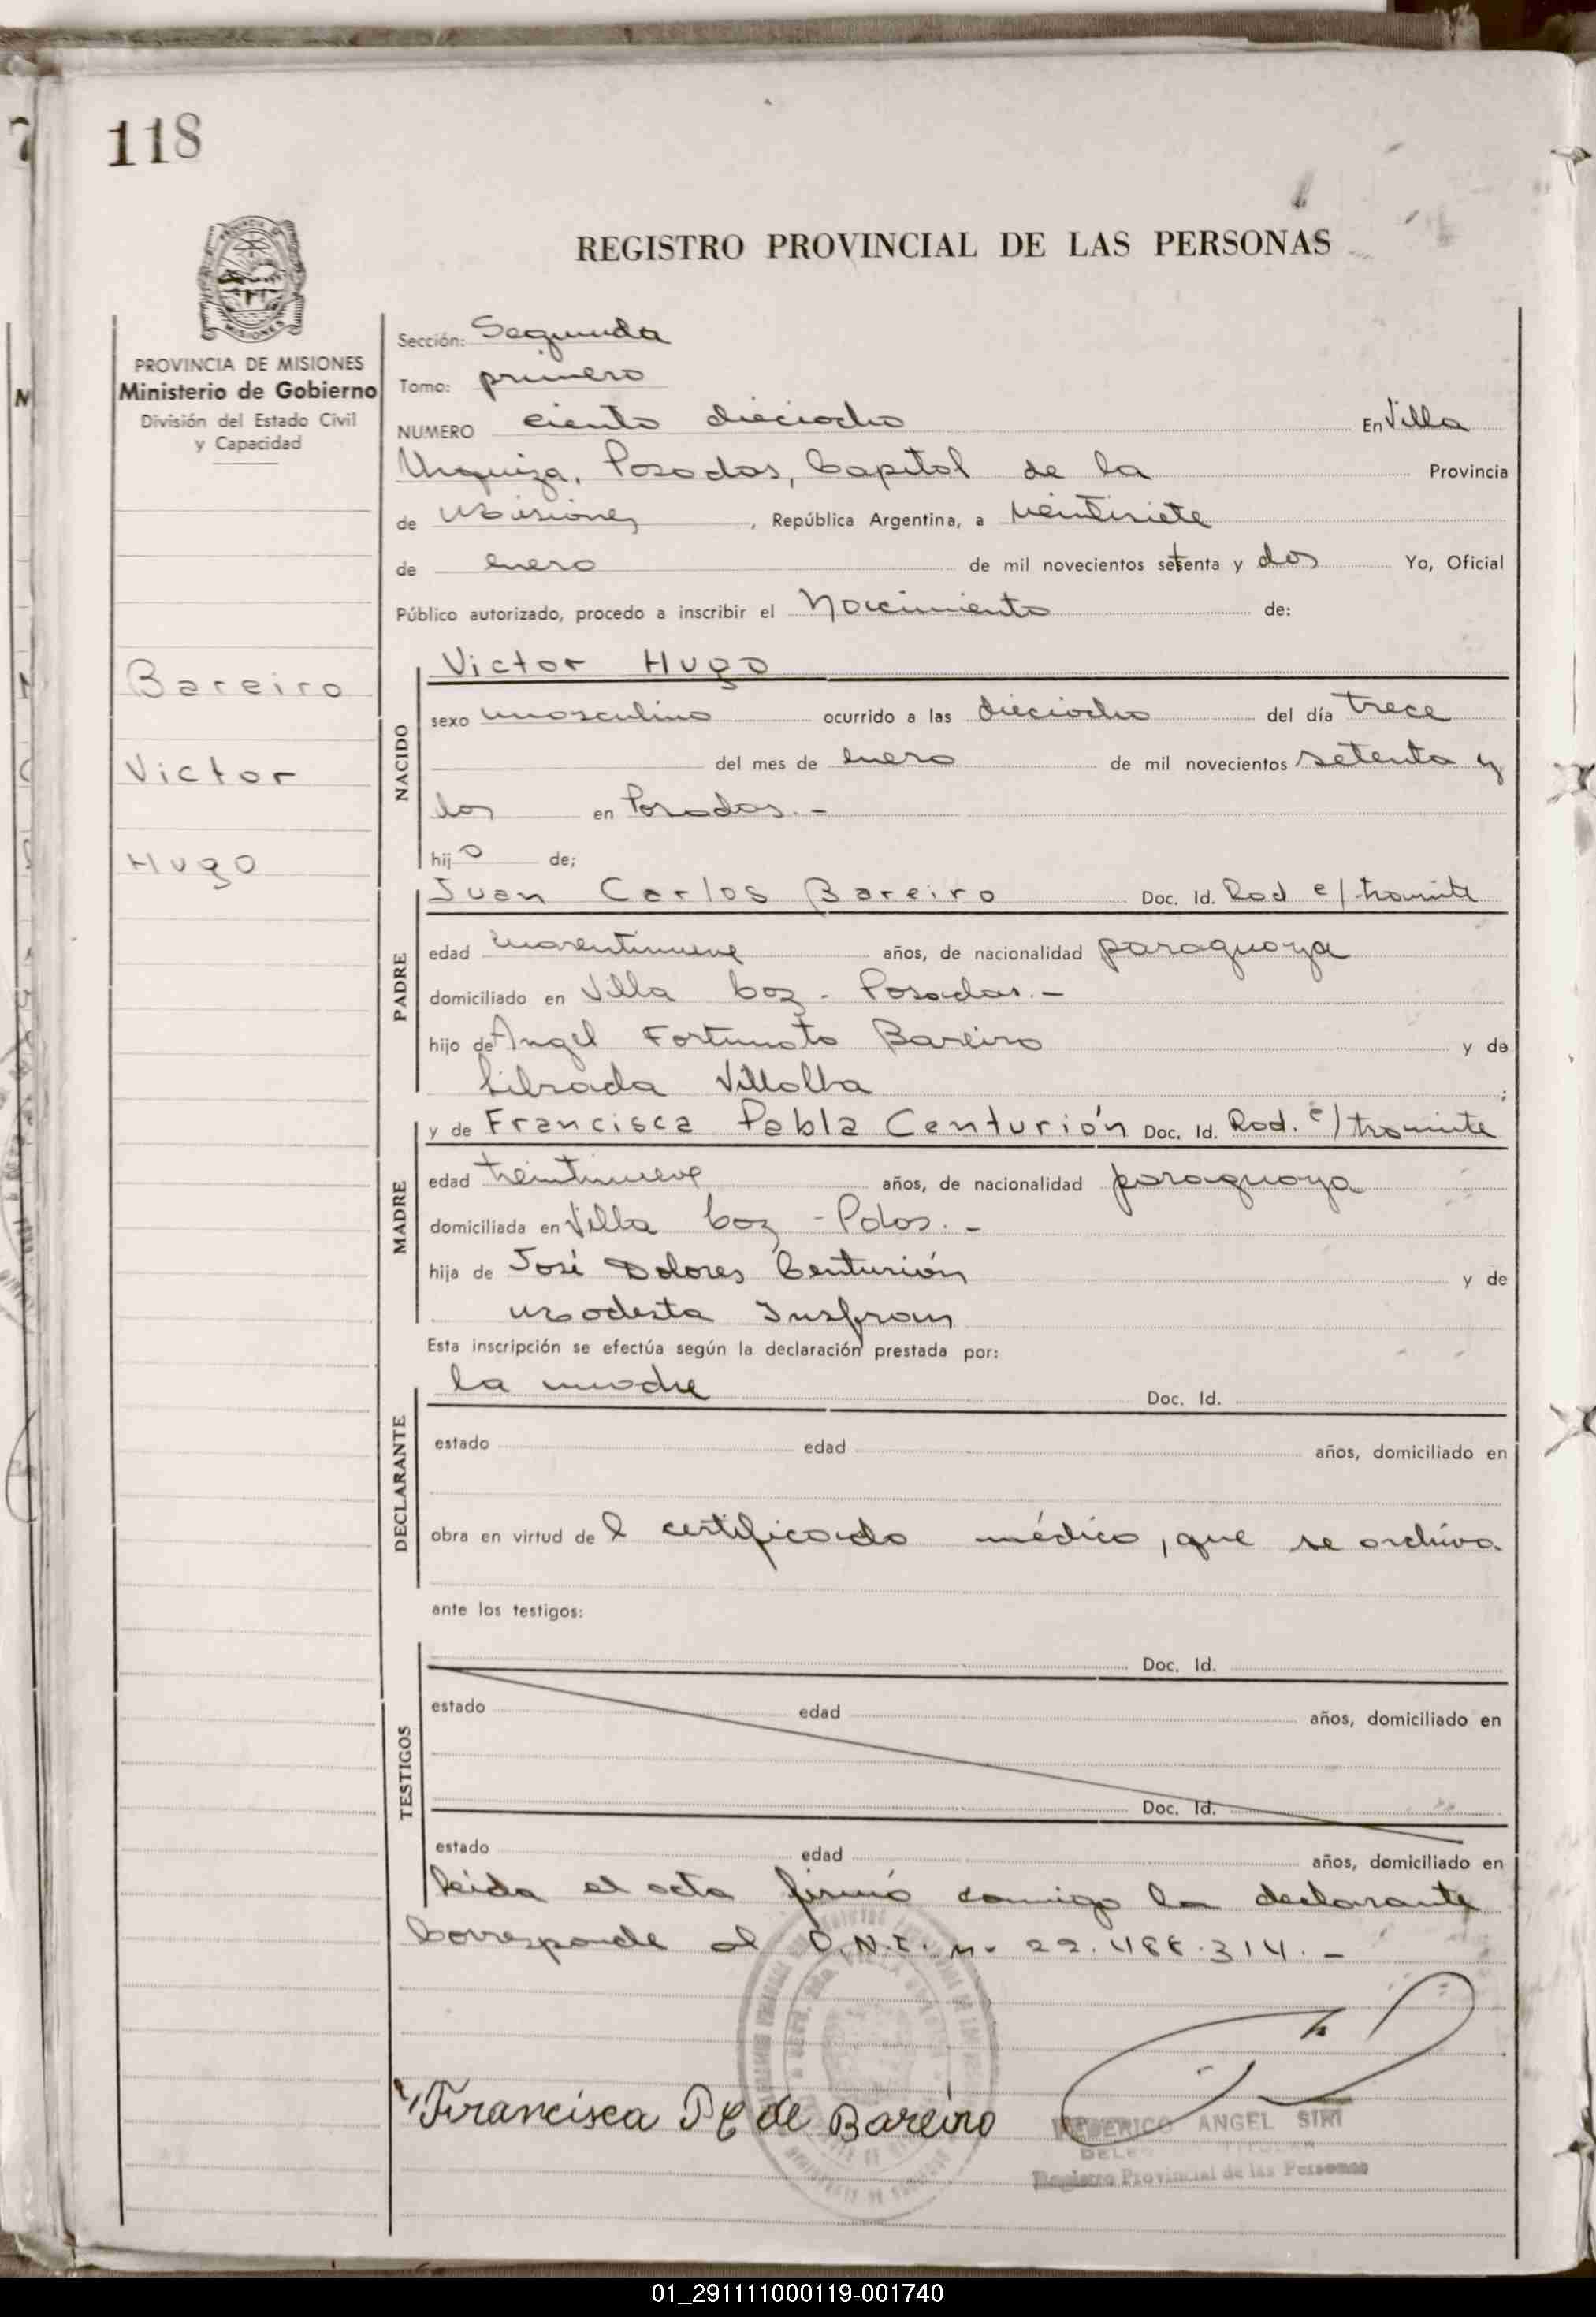 118
REGISTRO PROVINCIAL DE LAS PERSONAS
PROVINCIA DE MISIONES
Ministerio de Gobierno
División del Estado Civil
y Capacidad
Bareiro
Victor
Hugo
Sección: Segunda
Tomo: primero
NUMERO ciento dieciocho En Villa
Urquiza, Posadas, Capital de la Provincia
de Misiones, República Argentina, a veintisiete
de enero de mil novecientos setenta y dos Yo, Oficial
Público autorizado, procedo a inscribir el Nacimiento de:
NACIDO
Victor Hugo
sexo masculino ocurrido a las dieciocho del día trece
del mes de enero de mil novecientos setenta y
dos en Posadas.-
hijo de;
PADRE
Juan Carlos Bareiro Doc. Id. Rad e/ tramite
edad cuarentinueve años, de nacionalidad paraguaya
domiciliado en Villa Coz - Posadas.-
hijo de Angel Fortunato Bareiro y de
Librada Villalba ;
MADRE
y de Francisca Pabla Centurión Doc. Id. Rad. e/ tramite
edad treintinueve años, de nacionalidad paraguaya
domiciliada en Villa Coz - Pdas.-
hija de José Dolores Centurión y de
Modesta Insfran
Esta inscripción se efectúa según la declaración prestada por:
DECLARANTE
la madre Doc. Id.
estado edad años, domiciliado en
obra en virtud del certificado médico, que se archiva
ante los testigos:
TESTIGOS
Doc. Id.
estado edad años, domiciliado en
Doc. Id.
estado edad años, domiciliado en
Leida el acta firmó conmigo la declarante
Corresponde al D.N.I. n-
Francisca P C de Bareiro
FEDERICO ANGEL SIRI
Registro Provincial de las Personas
01_291111000119-001740